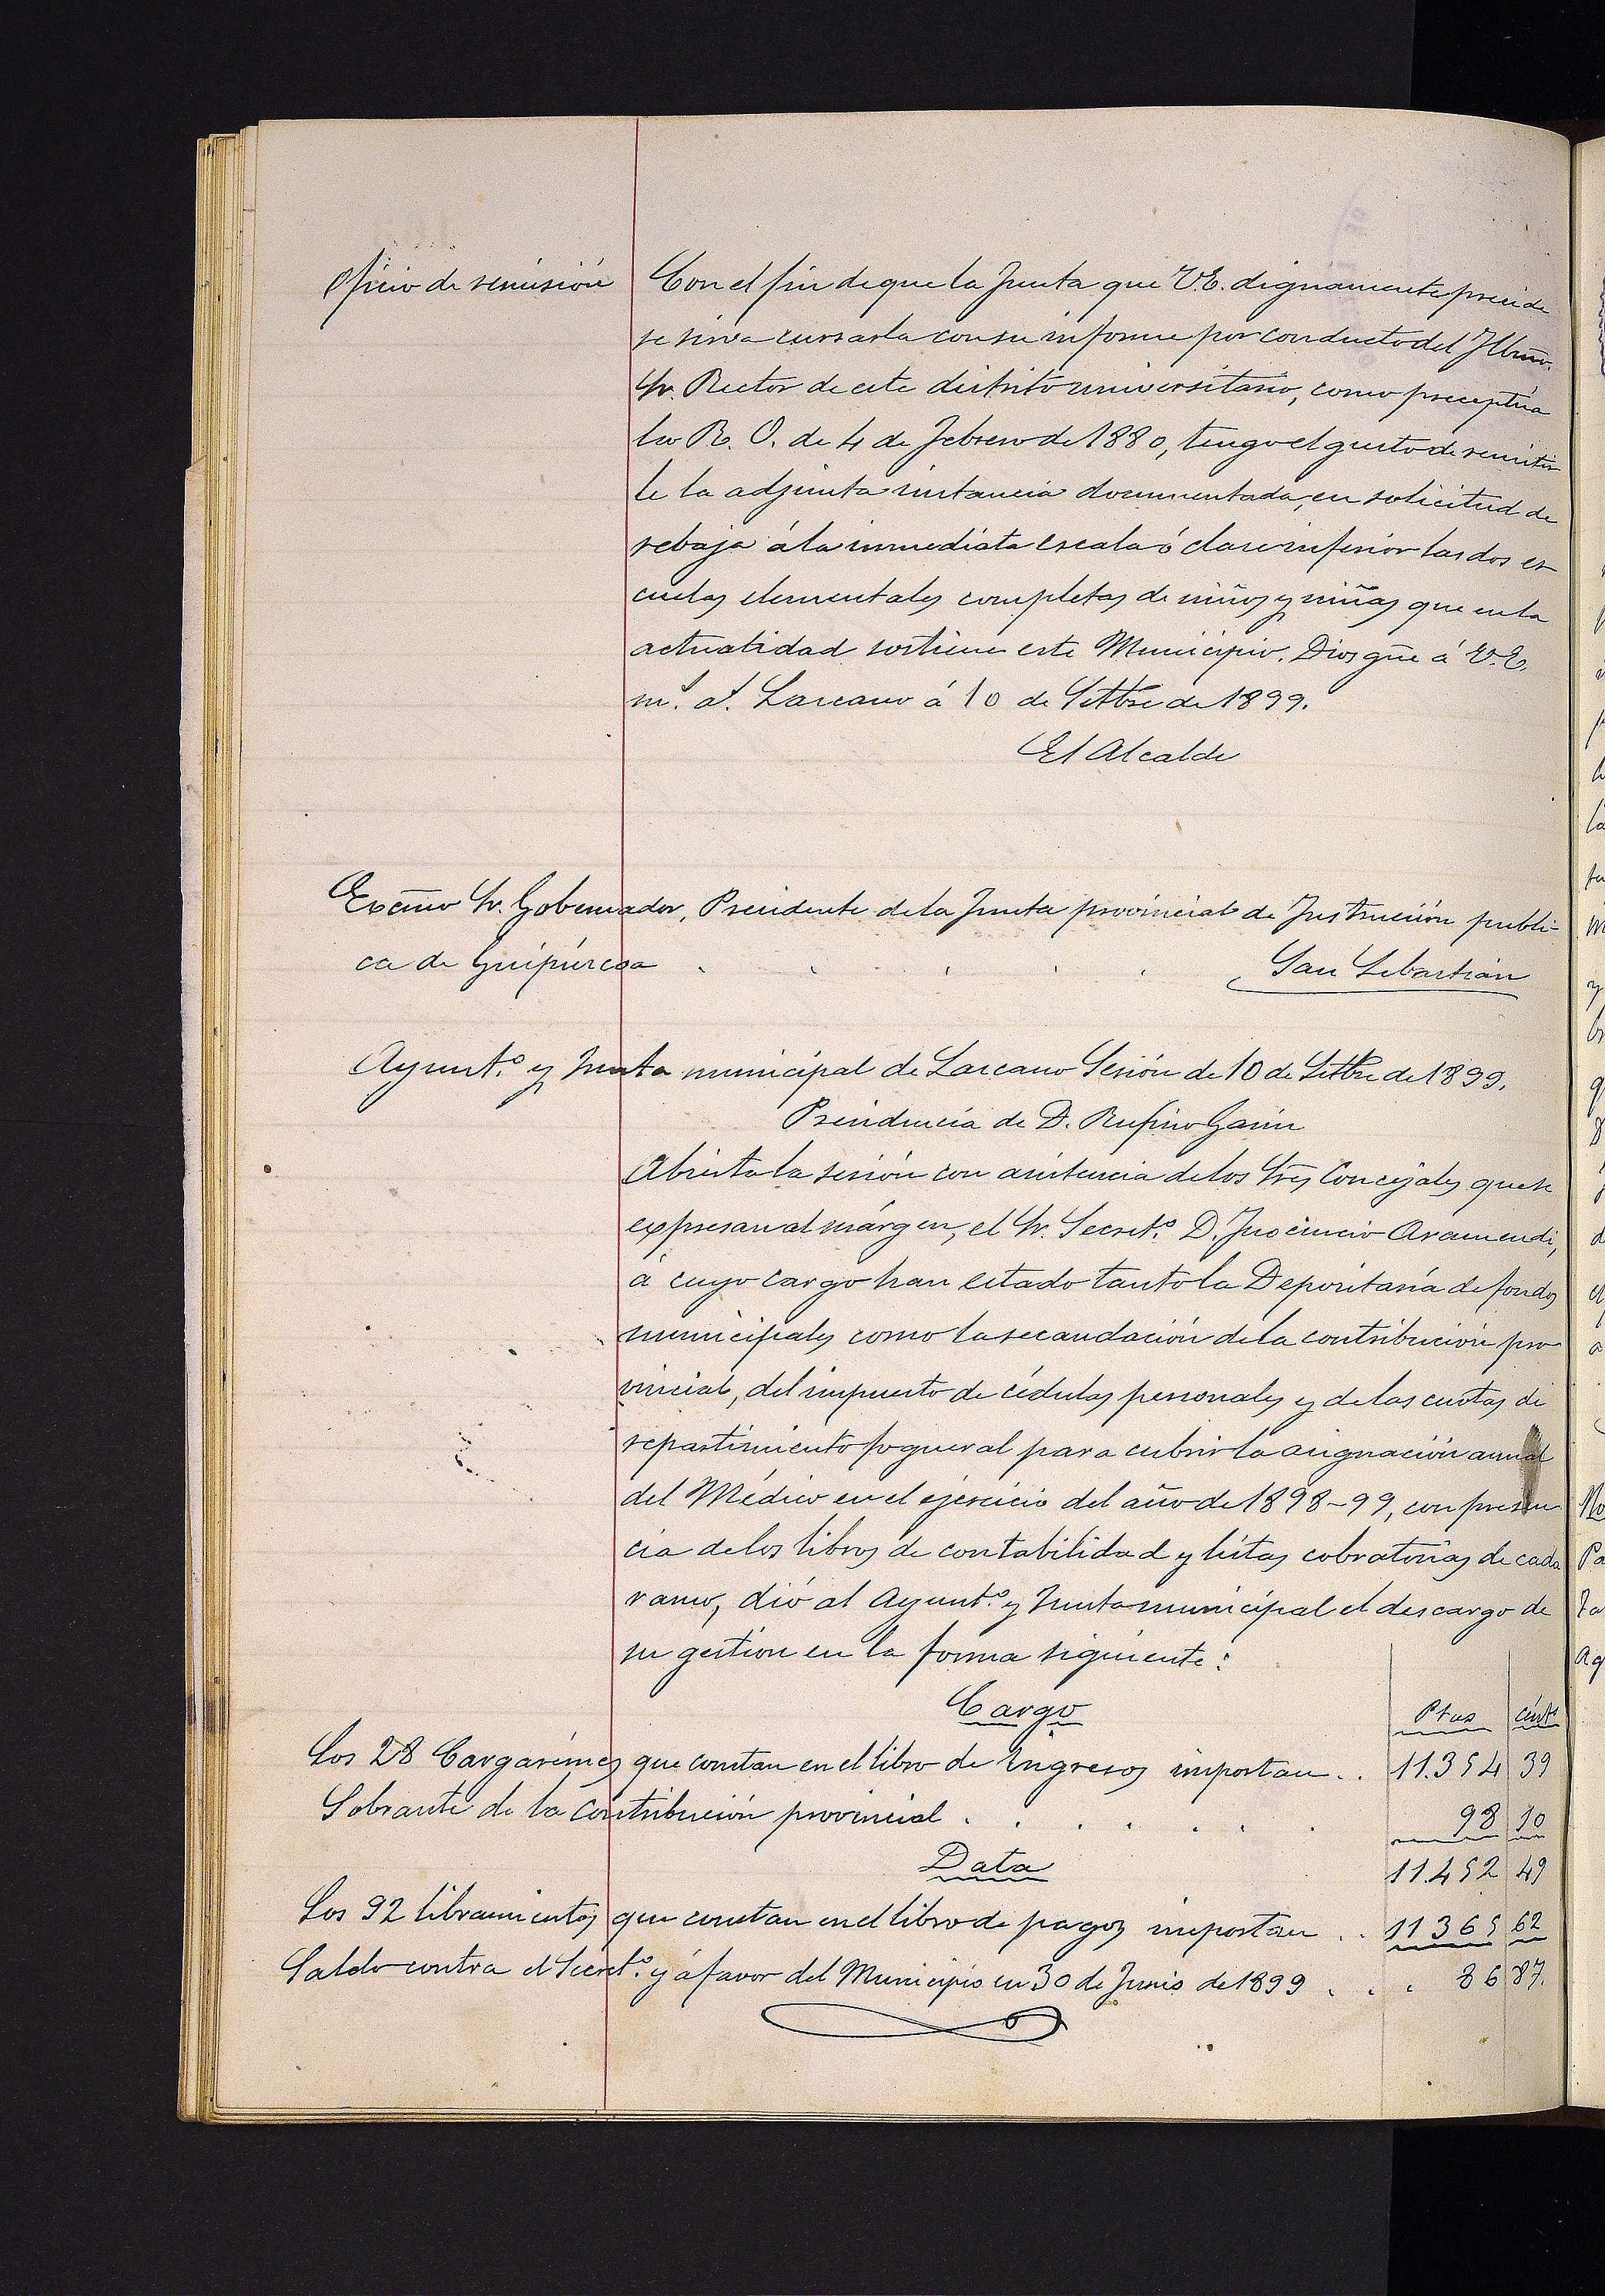 Oficio de remisión
Con el fin de que la Junta que V.E. dignamente preside
se sirva cursarla con su informe por conducto del Yltmo.
Sr. Rector de este distrito universitario, como preceptúa
la R. O. de 4 de Febrero de 1880, tengo el gusto de remitir
le la adjunta instancia documentada, en solicitud de
rebaja á la inmediata escala ó clase inferior las dos es
cuelas elementales completas de niños y niñas que en la
actualidad sostiene este Municipio. Dios gūe á V.E.
m.s a.s Lazcano á 10 de Settbre de 1899.
El Alcalde
Excmo Sr. Gobernador, Presidente de la Junta provincial de Instrucción públi-
ca de Guipúzcoa . . . . . . San Sebastián
Ayunt.o y Junta municipal de Lazcano Sesión de 10 de Settbre de 1899.
Presidencia de D. Rufino Garin
Abierta la sesión con asistencia de los Sres Concejales que se
expresan al márgen, el Sr. Secret.o D. Inocencio Aramendi,
á cuyo cargo han estado tanto la Depositaría de fondos
municipales como la recaudación de la contribución pro
vincial, del impuesto de cédulas personales y de las cuotas de
repartimiento fogueral para cubrir la asignación anual
del Médico en el ejercicio del año de 1898-99, con presen
cia de los libros de contabilidad y listas cobratorias de cada
ramo, dió al Ayunt.o y Junta municipal el descargo de
su gestión en la forma siguiente:
Cargo Ptas cénts
Los 28 Cargarémes que constan en el libro de Ingresos importan .. 11.354 39
Sobrante de la contribución provincial . . . . . . . 98 10
Data 11.452 49
Los 92 libramientos que constan en el libro de pagos importan .. 11 365 62
Saldo contra el Secret.o y á favor del Municipio en 30 de Junio de 1899 . . . 86 87.